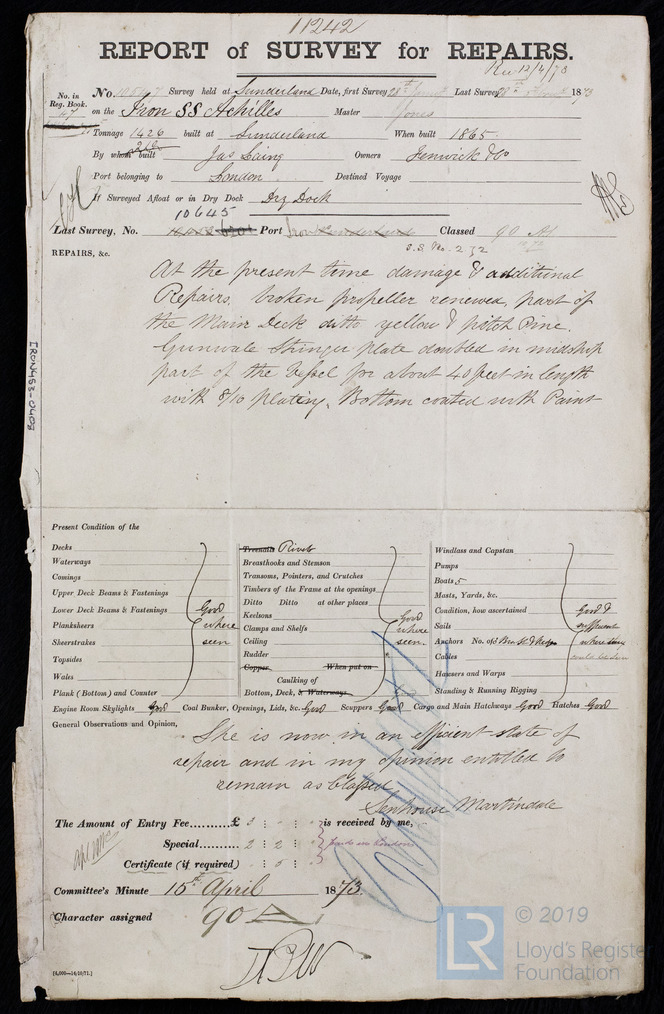 11242
REPORT of SURVEY for REPAIRS.
Rec 12/4/73
No. in Reg. Book.
No. Survey held at Sunderland Date, first Survey Last Survey 1873
on the Iron SS Achilles Master Jones
Tonnage 1426 built at Sunderland When built 1865
By whom built Jas Laing Owners Fenwick & Co
Port belonging to London Destined Voyage
If Surveyed Afloat or in Dry Dock Dry Dock
10645
Last Survey, No. Port Classed 90 A1
S.S. No. 2
REPAIRS, &c.
At the present time damage & additional
Repairs, broken propeller renewed, part of
the Main Deck ditto yellow & pitch Pine.
Gunwale Stringer plate doubled in midship
part of the Vessel for about 40 feet in length
with 8/10 plating, Bottom coated with Paint
IRON453-0408
Present Condition of the
Decks
Waterways
Comings
Upper Deck Beams & Fastenings
Lower Deck Beams & Fastenings
Planksheers
Sheerstrakes
Topsides
Wales
Plank (Bottom) and Counter
Good
where
seen
Treenails Rivets
Breasthooks and Stemson
Transoms, Pointers, and Crutches
Timbers of the Frame at the openings
Ditto Ditto at other places
Keelsons
Clamps and Shelfs
Ceiling
Rudder
Copper When put on
Caulking of
Bottom, Deck, & Waterways
Good
where
seen.
Windlass and Capstan
Pumps
Boats 5
Masts, Yards, &c.
Condition, how ascertained
Sails
Anchors No. of
Cables
Hawsers and Warps
Standing & Running Rigging
Good &
sufficient
where seen
Engine Room Skylights Good Coal Bunker, Openings, Lids, &c. Good Scuppers Good Cargo and Main Hatchways Good Hatches Good
General Observations and Opinion,
She is now in an efficient state of
repair and in my opinion entitled to
remain as Classed
Senhouse Martindale
The Amount of Entry Fee..........£ is received by me,
Special.......... 2 : 2 :
Certificate (if required)
Committee's Minute 15th April 1873.
Character assigned 90 A
[6,000—14/10/71.]
LR
© 2019
Lloyd's Register
Foundation